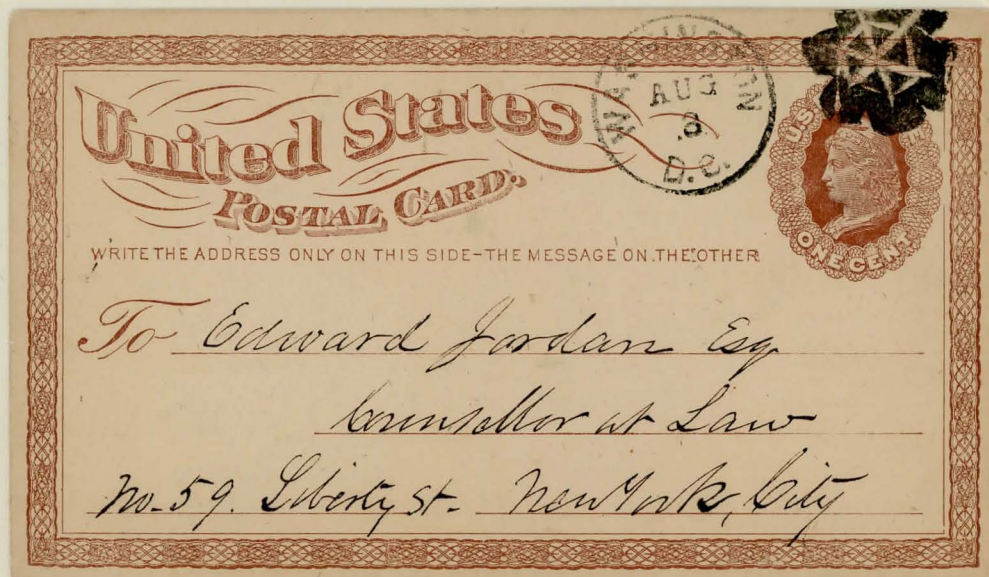 United States
POSTAL CARD.
WASHINGTON
AUG
D.C.
U.S.
ONE CENT
WRITE THE ADDRESS ONLY ON THIS SIDE-THE MESSAGE ON THE OTHER
To Edward Jordan Esq
Counsellor at Law
No. 59. Liberty St. New York, City